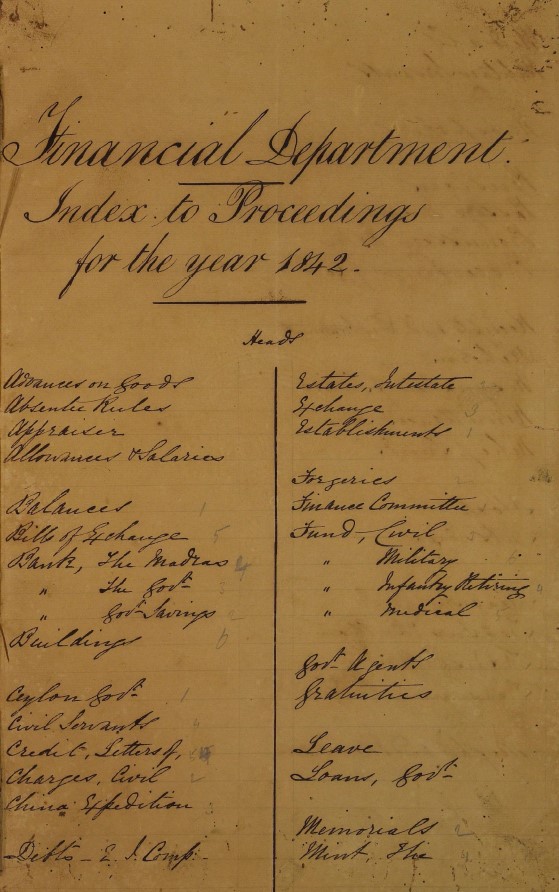 Financial Department.
Index to Proceedings
for the year 1842.
Heads
Advances on Goods
Absentee Rules
Appraiser
Allowances & Salaries
Balances 1
Bills of Exchange 5
Bank, The Madras 4
" The Govt.
" Govt. Savings 2
Buildings 6
Ceylon Govt. 1
Civil Servants "
Credit, Letters of,
Charges, Civil 2
China Expedition
Debts - E. I. Comp.
Estates, Intestate
Exchange
Establishments 1
Forgeries
Finance Committee
Fund, Civil
" Military
" Infantry Retiring "
" Medical
Govt. Agents
Gratuities
Leave
Loans, Govt.
Memorials 2
Mint, The